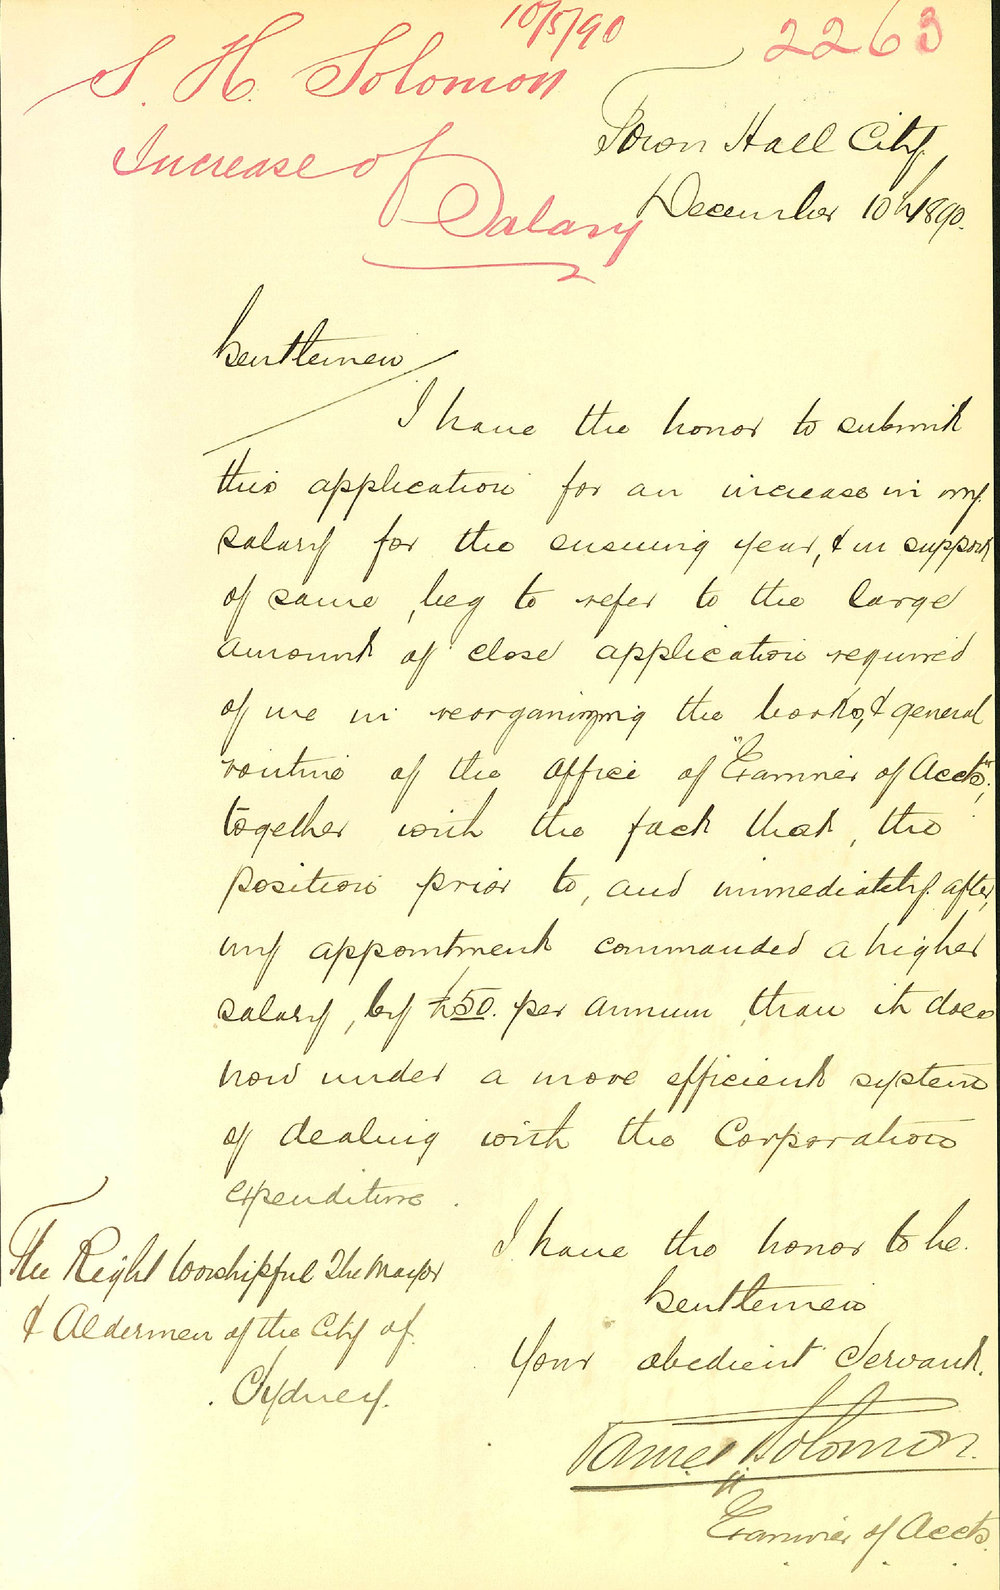 10/5/90
2263
J. H. Solomon
Increase of
Salary
Town Hall City,
December 10th 1890.
Gentlemen
I have the honor to submit
this application for an increase in my
salary for the ensuing year, & in support
of same, beg to refer to the large
amount of close application required
of me in reorganizing the books, & general
routine of the office of "Examiner of Accts",
together with the fact that, the
position prior to, and immediately after,
my appointment commanded a higher
salary, by £50. per annum, than it does
now under a more efficient system
of dealing with the Corporation
expenditure.
I have the honor to be.
Gentlemen
Your obedient Servant.
James H Solomon.
Examiner of Accts.
The Right Worshipful The Mayor
& Aldermen of the City of.
Sydney.